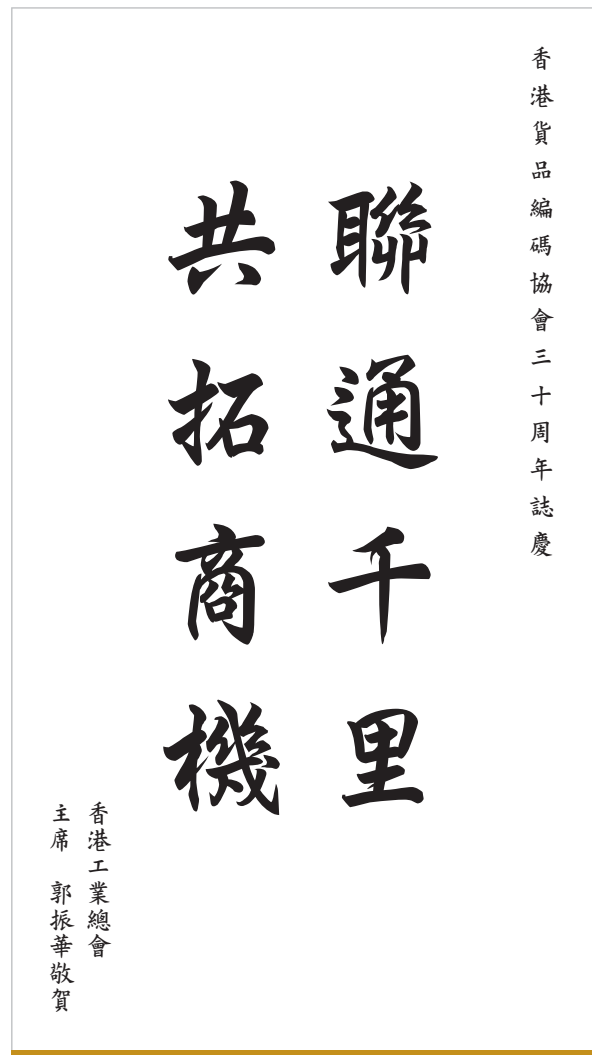 香港貨品編碼協會三十周年誌慶
聯通千里
共拓商機
香港工業總會
主席　郭振華敬賀